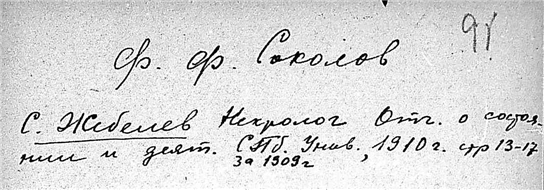 95
Ф. Ф. Соколов
С. Жебелев Некролог Отч. о состоя-
нии и деят. СПб. Унив., 1910 г. стр 13-17
за 1909 г